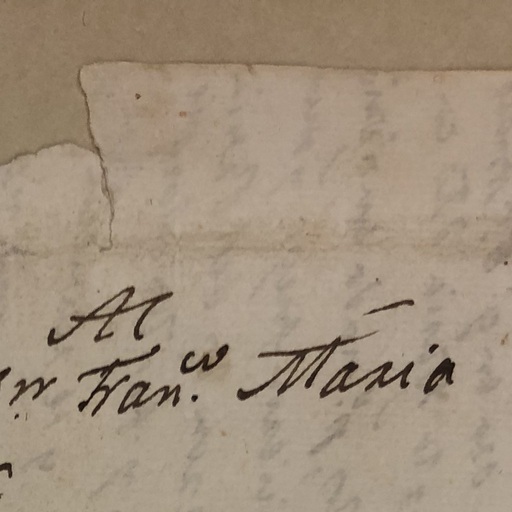 Al
Fran.co Maria